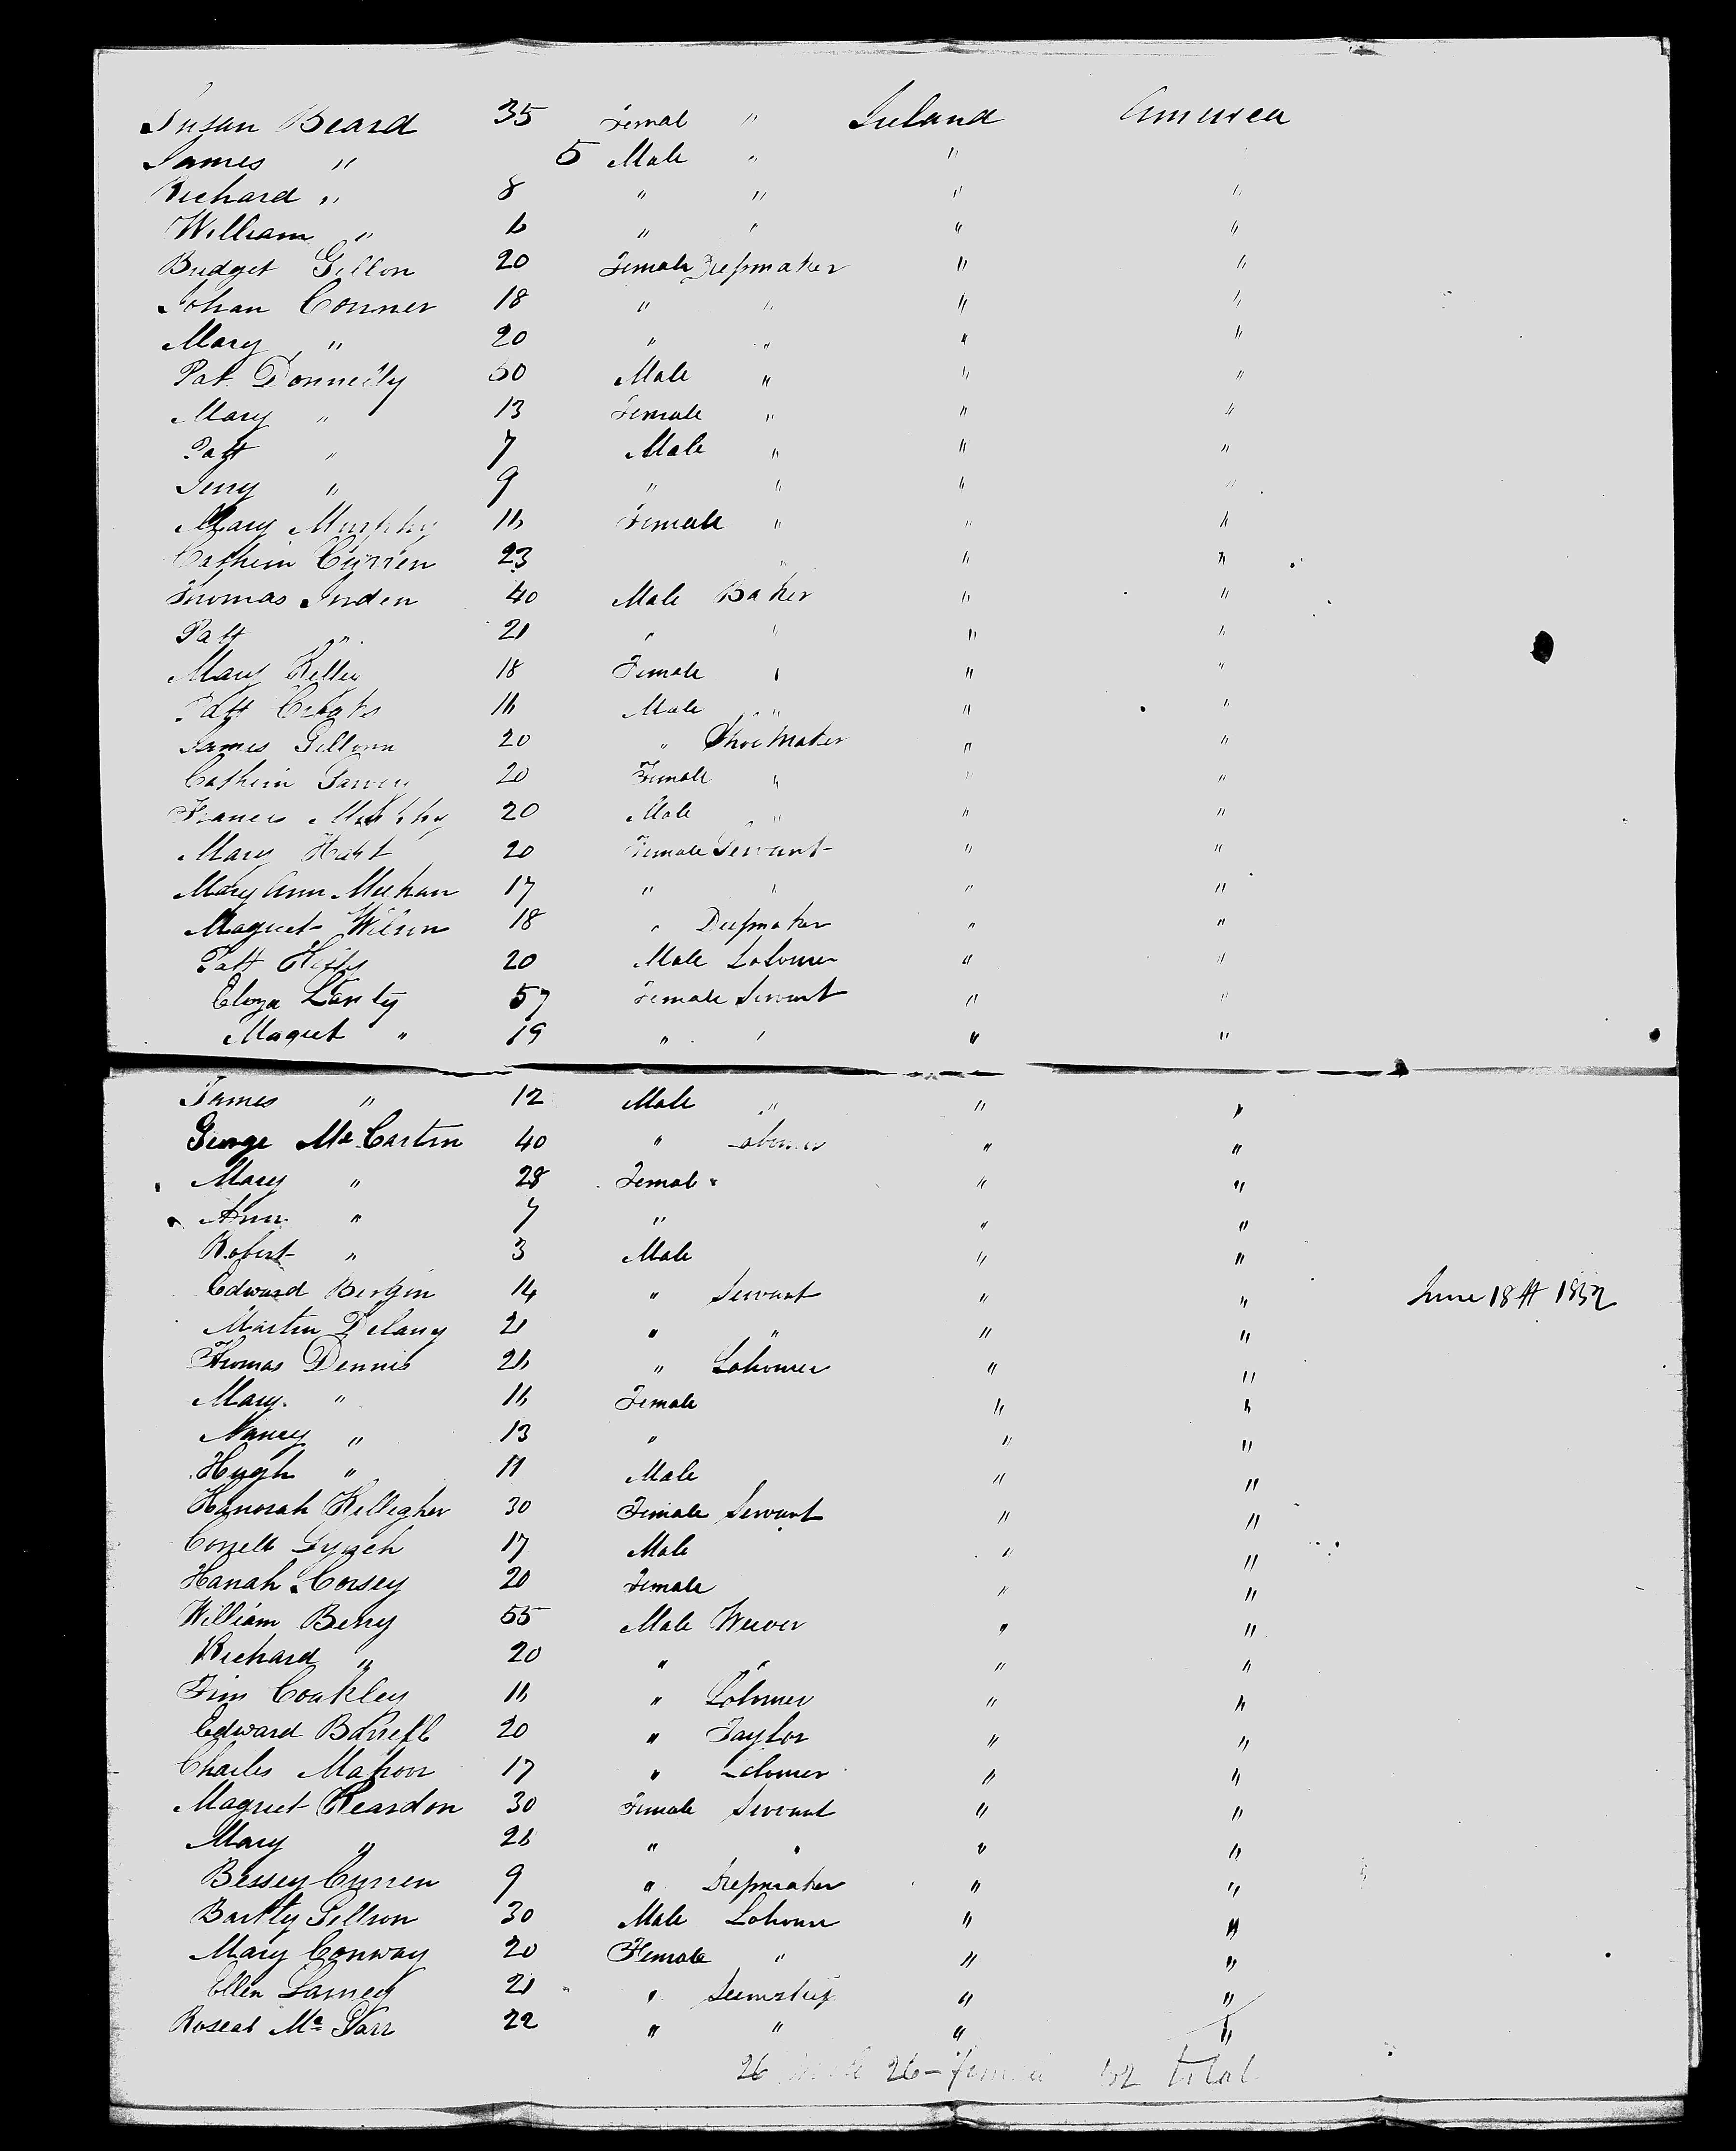 Susan Beard 35 Femal " Ireland America
James " 5 Male " "
Richard " 8 " " " "
William " 6 " " " "
Bridget Gillon 20 Female Dressmaker " "
Johan Conner 18 " " " "
Mary " 20 " " " "
Pat Donnelly 50 Male " " "
Mary " 13 Female " " "
Patt " 7 Male " " "
Jerry " 9 " " " "
Mary Murphy 16 Female " " "
Cathein Curren 23 " " "
Thomas 40 Male Baker " "
Patt " 21 " " " "
Mary 18 Female " " "
Patt 16 Male " " "
James Gillown 20 " Shoemaker " "
Cathein 20 Female " " "
Francis Murphy 20 Male " " "
Mary Hart 20 Female Servant " "
Mary Ann Meehan 17 " " " "
Magret Wilson 18 " Dressmaker " "
Patt 20 Male Labourer " "
Eloza 57 Female Servant " "
Magret " 19 " " " "
James " 12 Male " " "
George Mc Cartin 40 " Labourer " "
Mary " 28 Femal " " "
Ann " 7 " " "
Robert " 3 Male " "
Edward Bergin 14 " Servant " " June 18th 1832
Martin Delany 21 " " " "
Thomas Dennis 26 " Labourer " "
Mary " 16 Female " "
Nancy " 13 " " "
Hugh " 11 Male " "
Hanorah Kellegher 30 Female Servant " "
Cornell Lynch 17 Male " "
Hanah Corsey 20 Female " "
William Berry 55 Male Weever " "
Richard " 20 " " " "
Tim Coakley 16 " Labourer " "
Edward Barrett 20 " Taylor " "
Charles Mahon 17 " Labourer " "
Magret Reardon 30 Female Servant " "
Mary " 26 " " " "
Bessey Curren 9 " Dressmaker " "
Bartly Gillson 30 Male Labourer " "
Mary Conway 20 Female " " "
Ellen 21 " " "
Roseal Mc 22 " " " "
26 male 26 - female 52 total